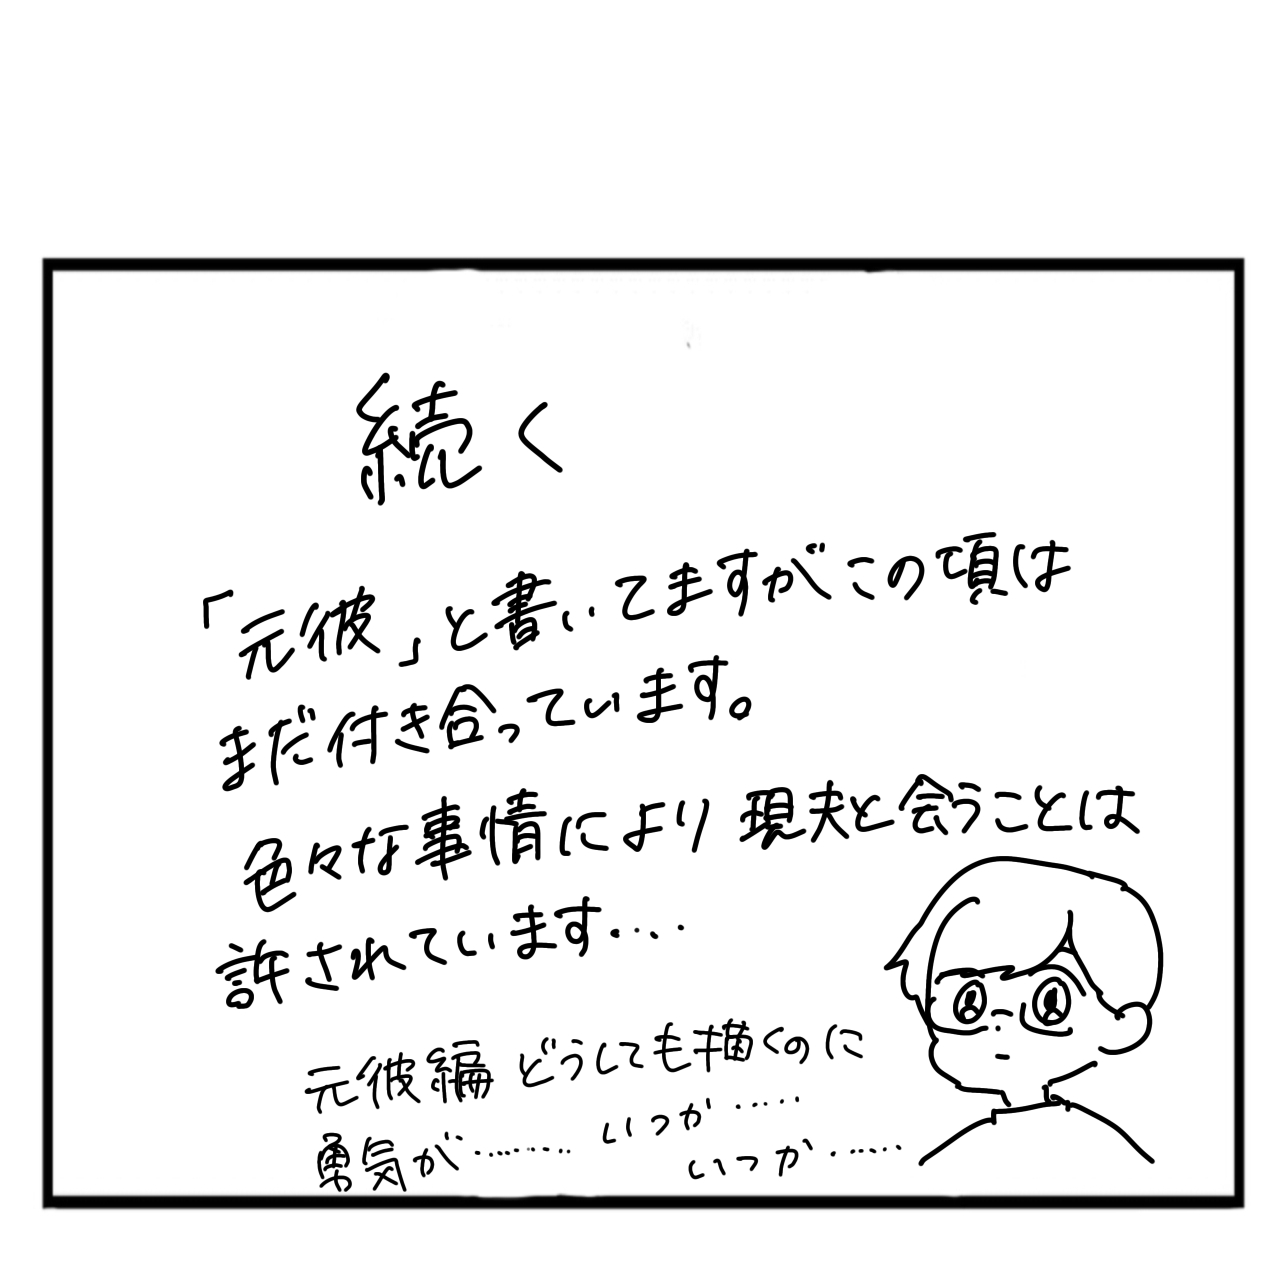 続く
「元彼」と書いてますがこの頃は
まだ付き合っています。
色々な事情により現夫と会うことは
許されています....
元彼編 どうしても描くのに
勇気が........ いつか.....
いつか......